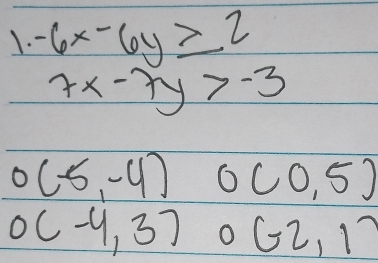 1. -6x - 6y ≥ 2
7x - 7y > -3
o (-5, -4) o (0, 5)
o (-4, 3) o (-2, 1)